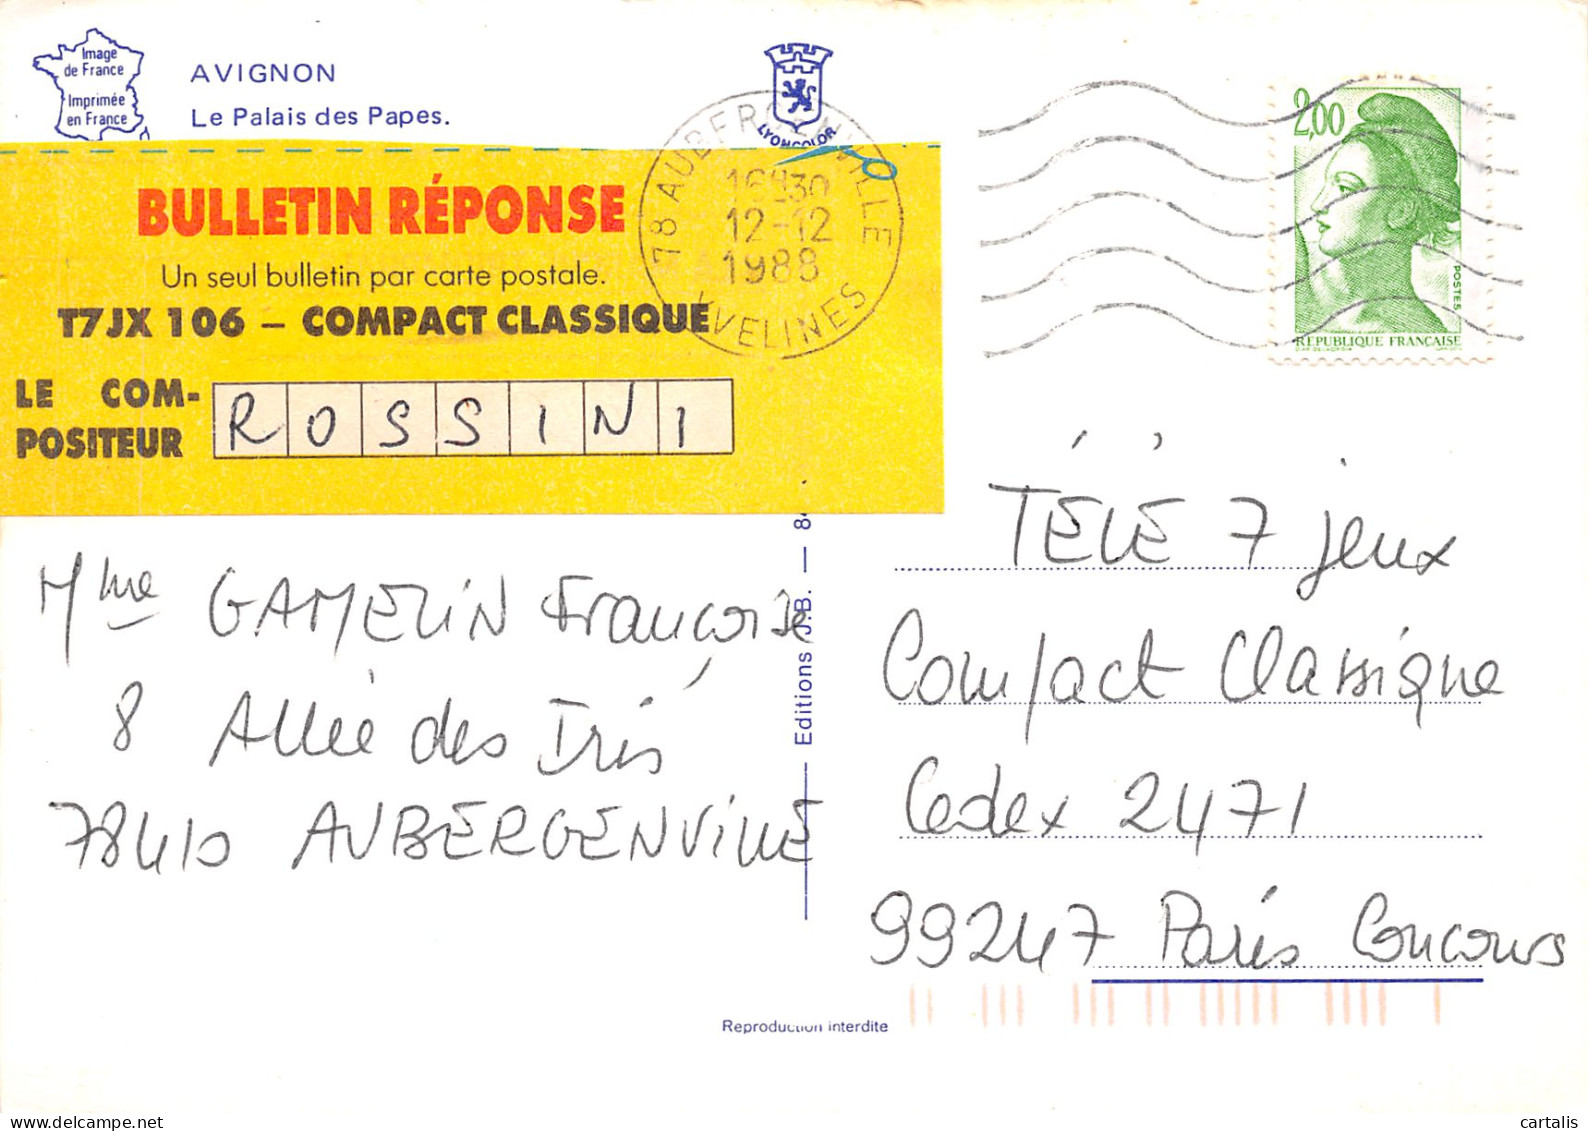 Image
de France
Imprimée
en France
AVIGNON
Le Palais des Papes.
LYONCOLOR
78 AUBERGENVILLE
16H30
12-12
1988
YVELINES
2,00
POSTES
RÉPUBLIQUE FRANÇAISE
BULLETIN RÉPONSE
Un seul bulletin par carte postale.
T7JX 106 – COMPACT CLASSIQUE
LE COM-
POSITEUR
ROSSINI
Mme GAMELIN Françoise
8 Allée des Iris
78410 AUBERGENVILLE
Editions J.B. — 84
TÉLÉ 7 jeux
Compact Classique
Cedex 2471
99247 Paris Concours
Reproduction interdite
cartalis